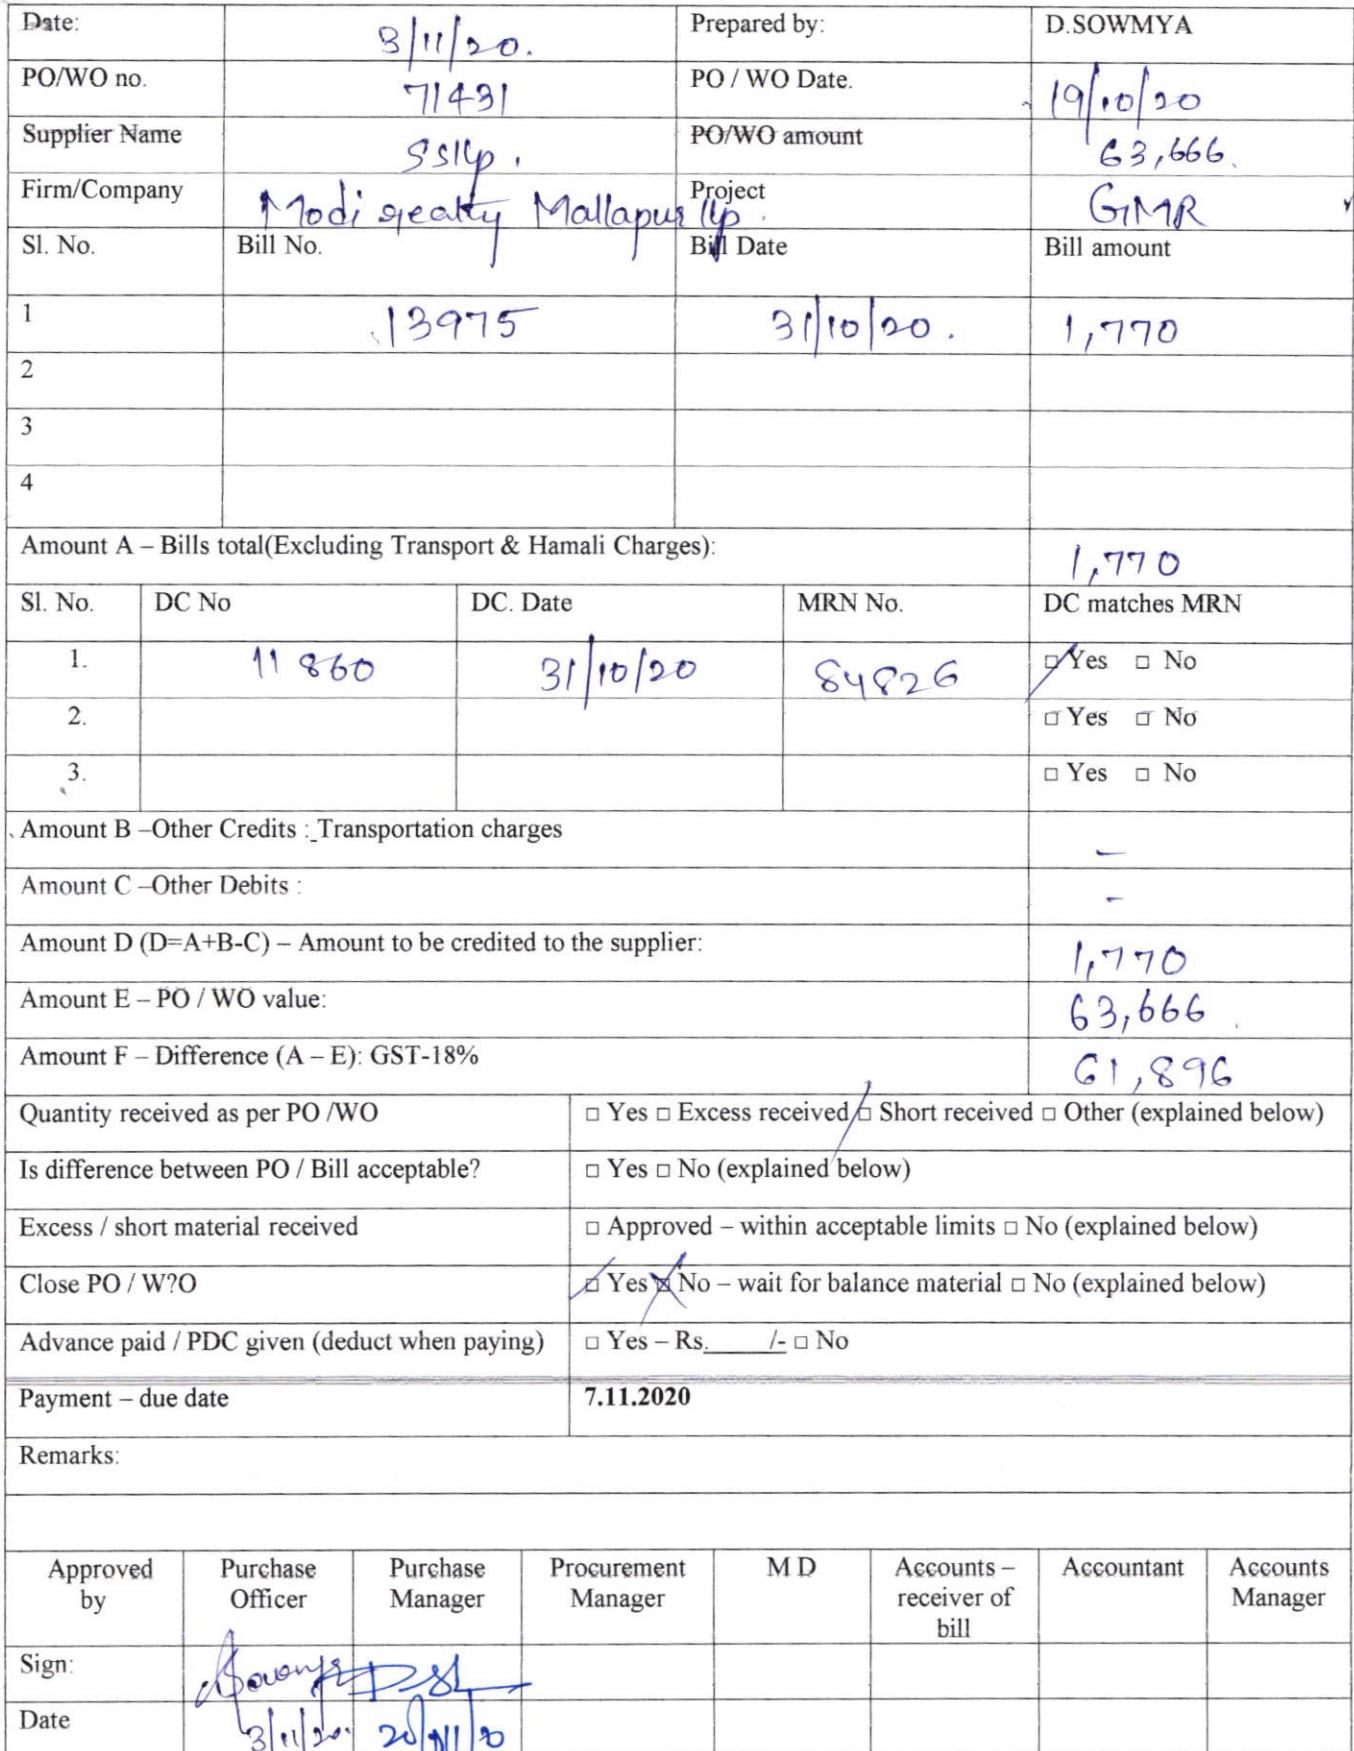 Date: 3/11/20. Prepared by: D.SOWMYA
PO/WO no. 71431 PO / WO Date. 19/10/20
Supplier Name SSllp. PO/WO amount 63,666.
Firm/Company Modi realty Mallapur llp. Project GMR
Sl. No. Bill No. Bill Date Bill amount
1 13975 31/10/20. 1,770
2
3
4
Amount A – Bills total(Excluding Transport & Hamali Charges): 1,770
Sl. No. DC No DC. Date MRN No. DC matches MRN
1. 11860 31/10/20 84826 □ Yes □ No
2. □ Yes □ No
3. □ Yes □ No
Amount B –Other Credits : Transportation charges –
Amount C –Other Debits : -
Amount D (D=A+B-C) – Amount to be credited to the supplier: 1,770
Amount E – PO / WO value: 63,666
Amount F – Difference (A – E): GST-18% 61,896
Quantity received as per PO /WO □ Yes □ Excess received □ Short received □ Other (explained below)
Is difference between PO / Bill acceptable? □ Yes □ No (explained below)
Excess / short material received □ Approved – within acceptable limits □ No (explained below)
Close PO / W?O □ Yes □ No – wait for balance material □ No (explained below)
Advance paid / PDC given (deduct when paying) □ Yes – Rs.____/- □ No
Payment – due date 7.11.2020
Remarks:
Approved Purchase Purchase Procurement M D Accounts – Accountant Accounts
by Officer Manager Manager receiver of Manager
bill
Sign: Sowmya
Date 3/11/20. 20/11/20